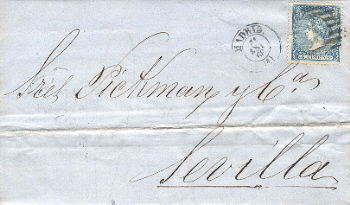 MADRID
Sres Pickman y Ca
Sevilla